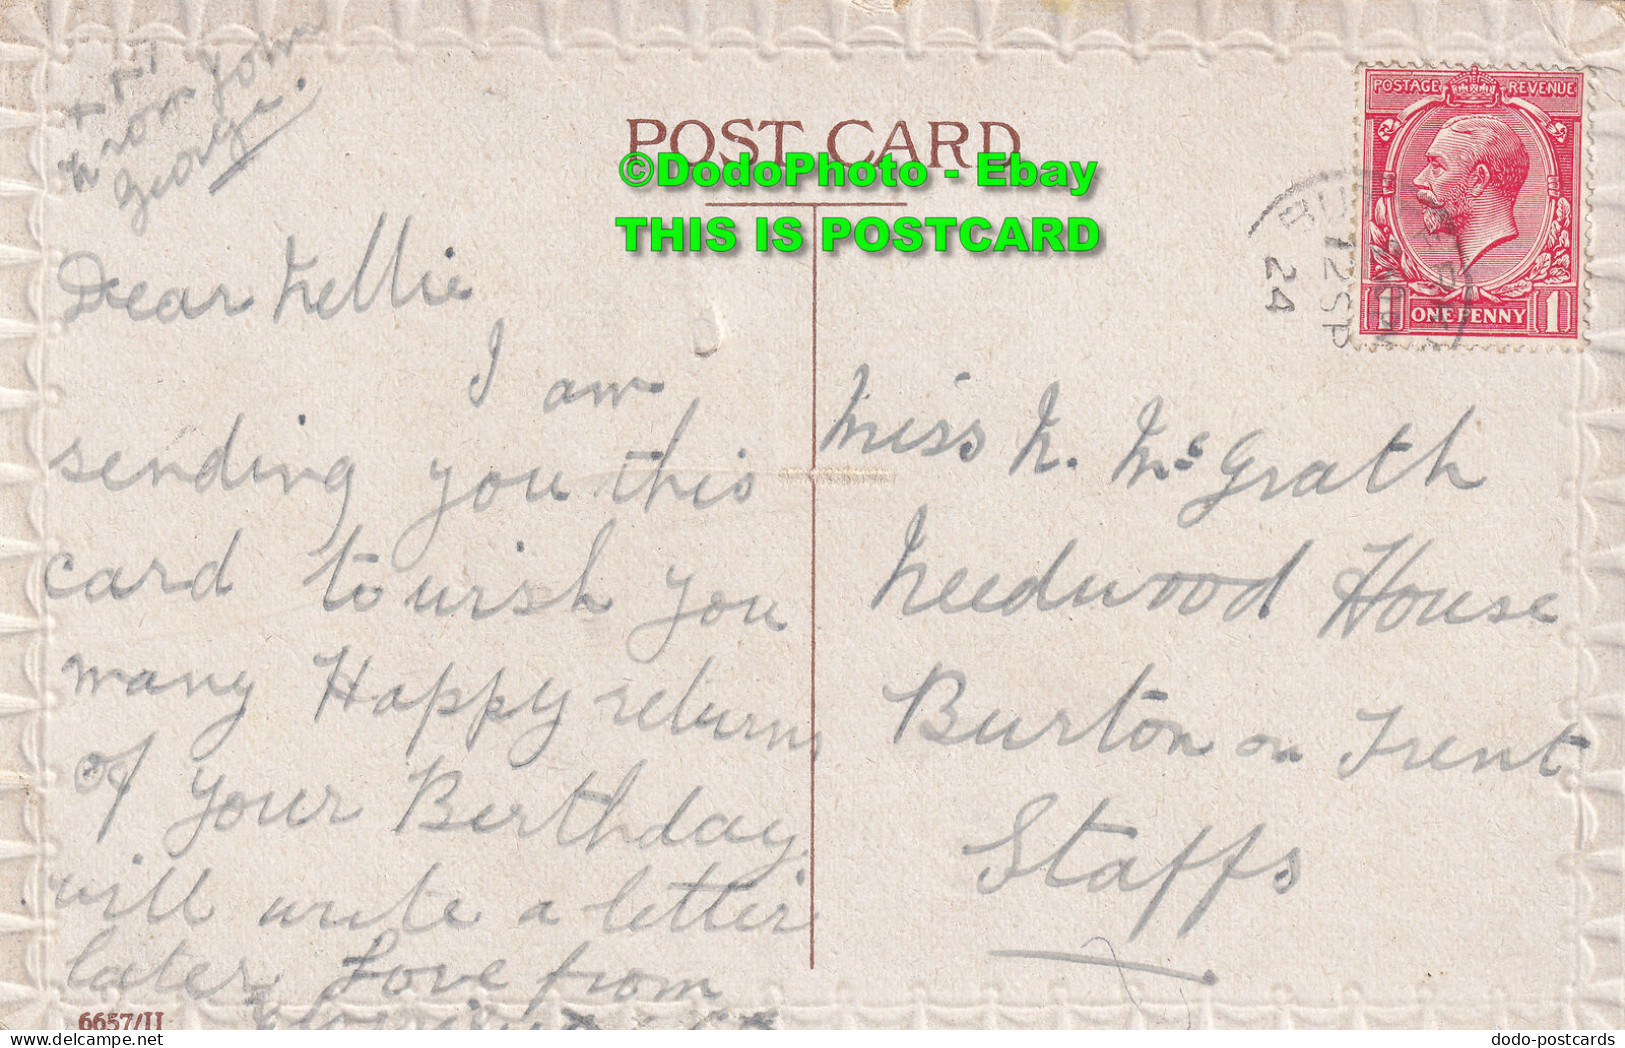 x x x
from John
George.
POST CARD
©DodoPhoto - Ebay
THIS IS POSTCARD
POSTAGE REVENUE
1 ONE PENNY 1
BU
12 SP
24
Dear Nellie
I am
sending you this
card to wish you
many Happy returns
of your Birthday.
will write a letter
later Love from
Miss N. McGrath
Needwood House
Burton on Trent
Staffs
6657/II
dodo-postcards